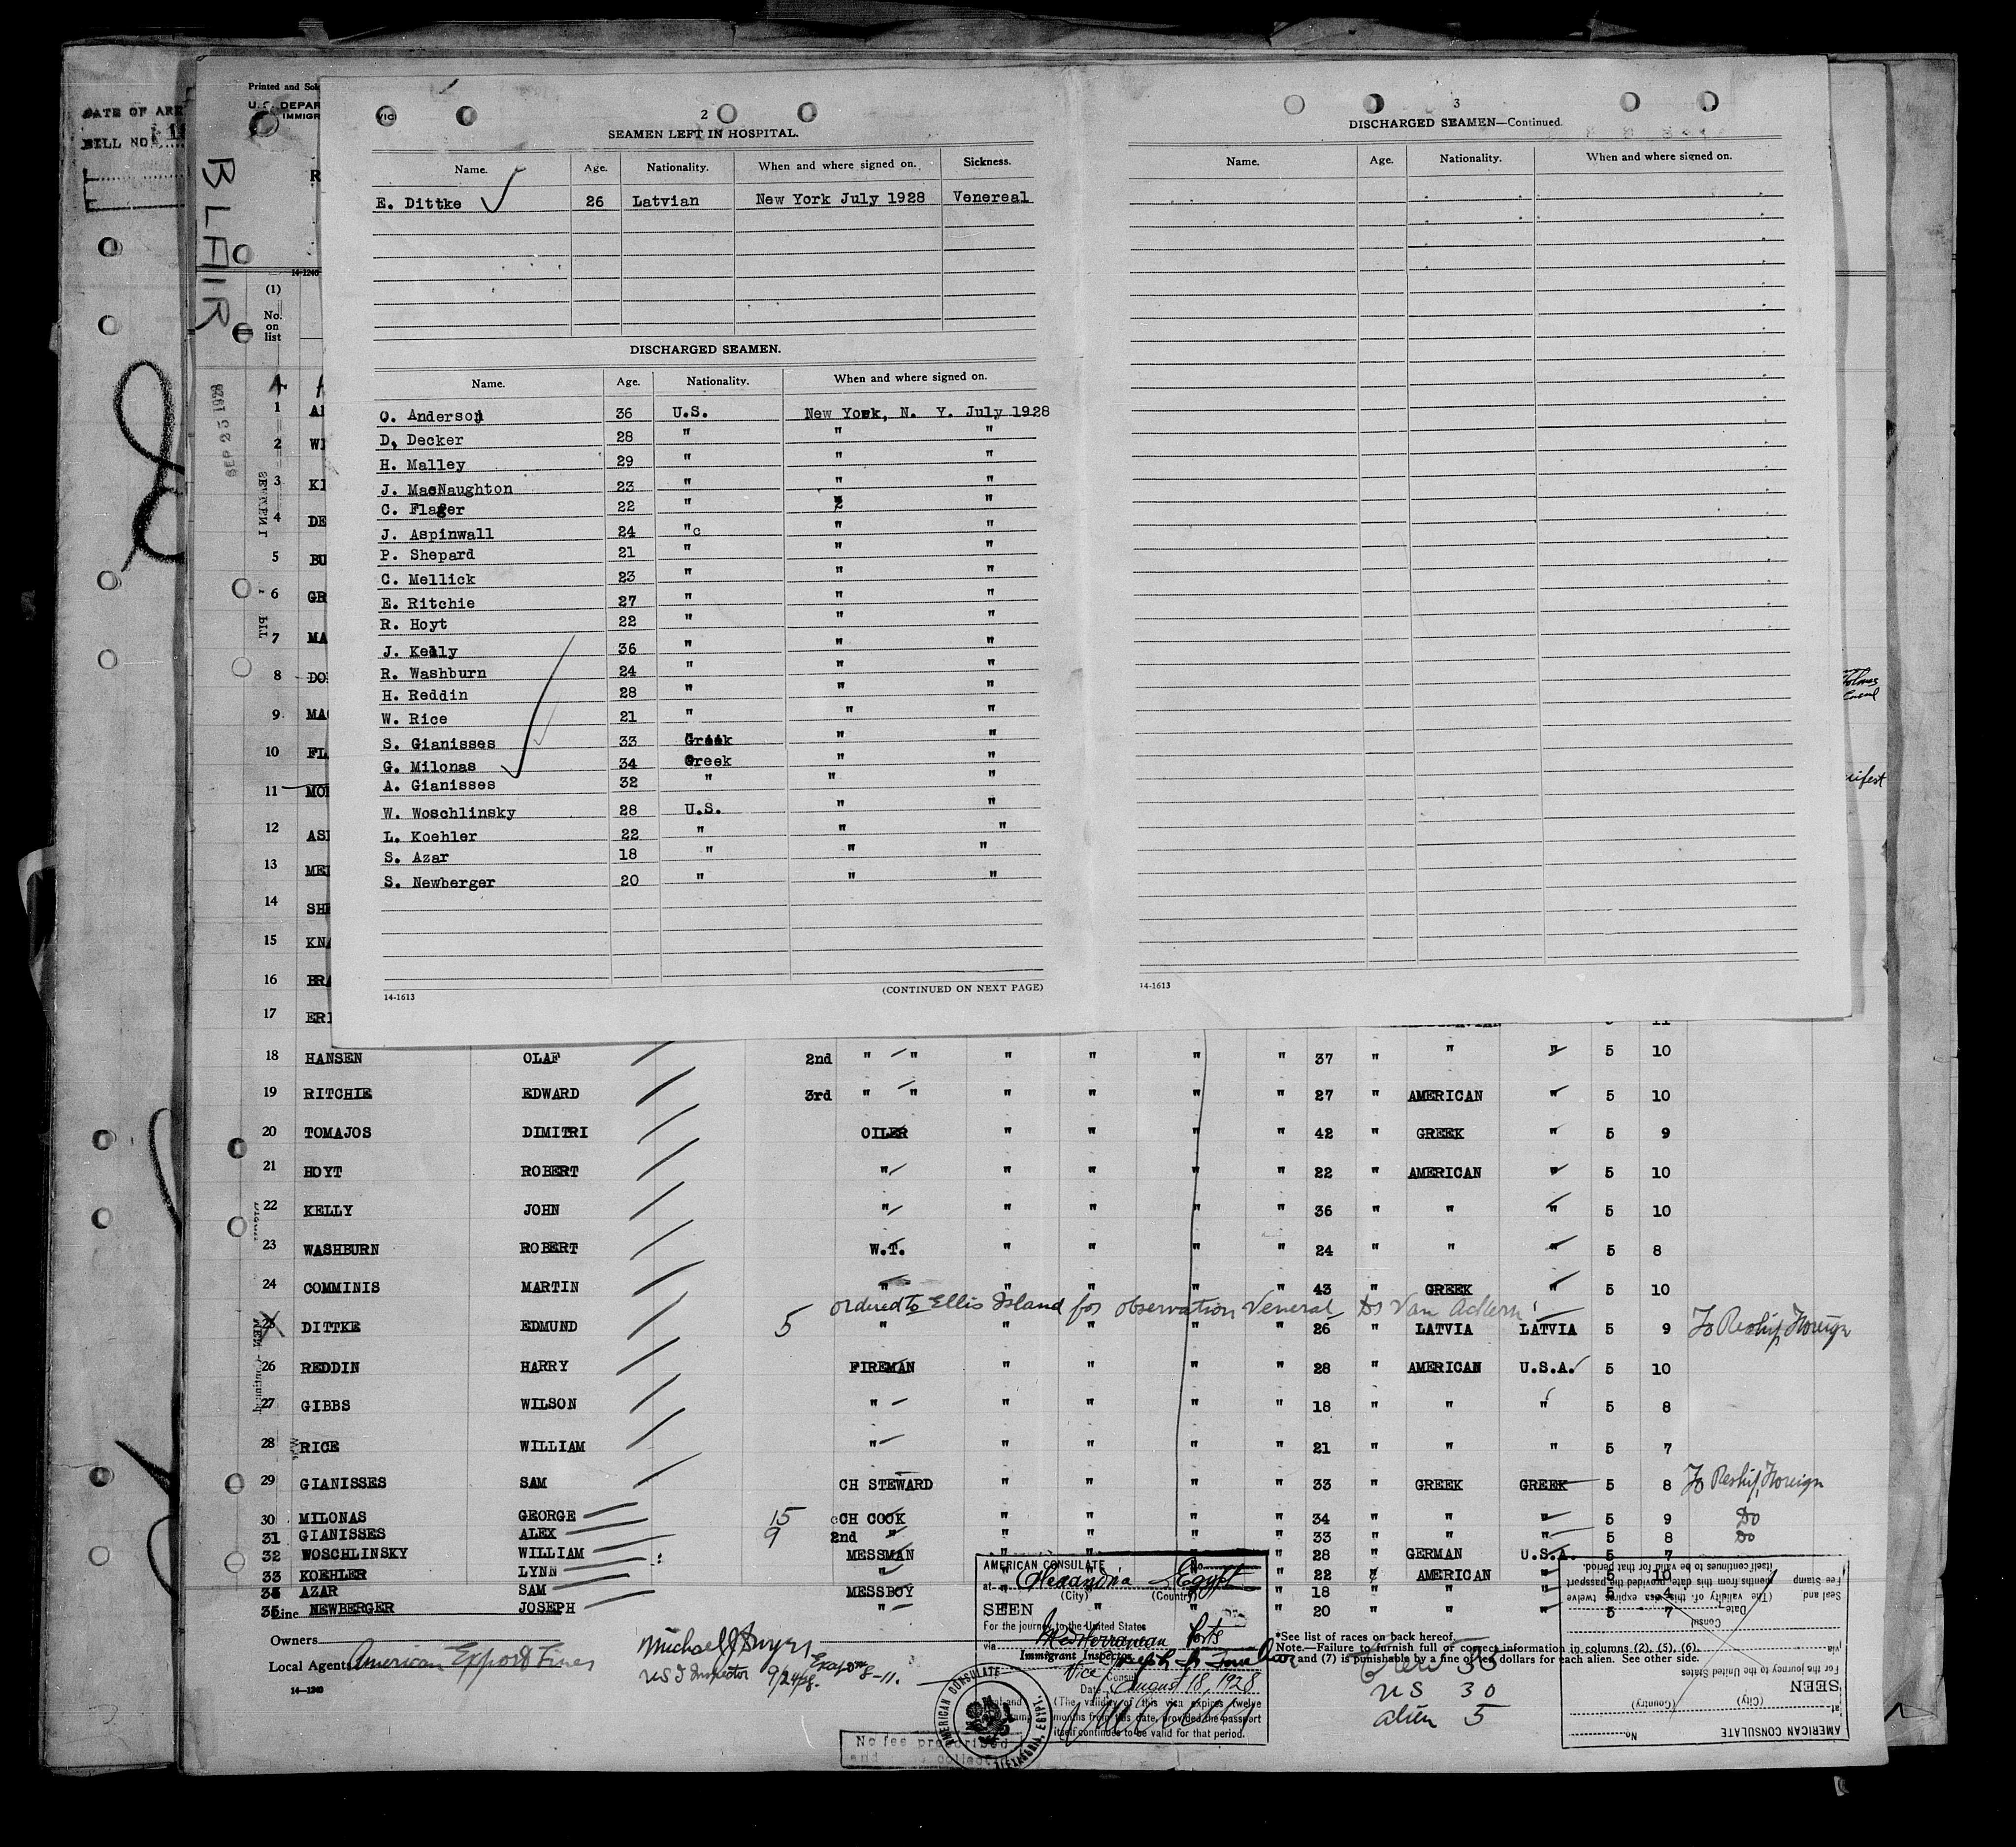 DATE OF
BILL NO.
Printed and
U.S. DEPAR
IMMIGR
BLAIR
14-1240
(1)
No. on list
SEP 25 1928
2
SEAMEN LEFT IN HOSPITAL.
Name. Age. Nationality. When and where signed on. Sickness.
E. Dittke 26 Latvian New York July 1928 Venereal
DISCHARGED SEAMEN.
Name. Age. Nationality. When and where signed on.
O. Anderson 36 U.S. New York, N. Y. July 1928
D, Decker 28 " " "
H. Malley 29 " " "
J. MacNaughton 23 " " "
C. Flager 22 " " "
J. Aspinwall 24 "c " "
P. Shepard 21 " " "
C. Mellick 23 " " "
E. Ritchie 27 " " "
R. Hoyt 22 " " "
J. Kelly 36 " " "
R. Washburn 24 " " "
H. Reddin 28 " " "
W. Rice 21 " " "
S. Gianisses 33 Greek " "
G. Milonas 34 Greek " "
A. Gianisses 32 " " "
W. Woschlinsky 28 U.S. " "
L. Koehler 22 " " "
S. Azar 18 " " "
S. Newberger 20 " " "
14-1613 (CONTINUED ON NEXT PAGE)
3
DISCHARGED SEAMEN—Continued.
Name. Age. Nationality. When and where signed on.
14-1613
1 A
2 W
3 KI
4 DE
5 BU
6 GR
7 MA
8 DO
9 MA
10 FL
11 MO
12 AS
13 ME
14 SH
15 KN
16 BR
17 ER 11
18 HANSEN OLAF 2nd " " " " " " 37 " " " 5 10
19 RITCHIE EDWARD 3rd " " " " " " 27 " AMERICAN " 5 10
20 TOMAJOS DIMITRI OILER " " " " 42 " GREEK " 5 9
21 HOYT ROBERT " " " " " 22 " AMERICAN " 5 10
22 KELLY JOHN " " " " " 36 " " " 5 10
23 WASHBURN ROBERT W.T. " " " " 24 " " " 5 8
24 COMMINIS MARTIN " " " " " 43 " GREEK " 5 10
ordered to Ellis Island for observation Veneral Dr Van
25 DITTKE EDMUND 5 " " " " " 26 " LATVIA LATVIA 5 9 To Reship Foreign
26 REDDIN HARRY FIREMAN " " " " 28 " AMERICAN U.S.A. 5 10
27 GIBBS WILSON " " " " " 18 " " " 5 8
28 RICE WILLIAM " " " " " 21 " " " 5 7
29 GIANISSES SAM CH STEWARD " " " " 33 " GREEK GREEK 5 8 To Reship, Foreign
30 MILONAS GEORGE 15 CH COOK " " " " 34 " " " 5 9 Do
31 GIANISSES ALEX 9 2nd " " " " " 33 " " " 5 8 Do
32 WOSCHLINSKY WILLIAM MESSMAN " " " " 28 " GERMAN U.S.A. 5 7
33 KOEHLER LYNN " " " " " 22 " AMERICAN " 5 10
34 AZAR SAM MESSBOY " 18 " " " 5 4
35 NEWBERGER JOSEPH " " 20 " " " 5 7
Line
Owners
Local Agents American Export Lines
14-1240
US I Inspector 9/24/28
AMERICAN CONSULATE No.
at Alexandria Egypt
(City) (Country)
SEEN
For the journey to the United States
via Mediterranean Ports
Immigrant Inspector
Vice Consul
Date August 18, 1928
(The validity of this visa expires twelve
months from this date, provided the passport
itself continues to be valid for that period.
AMERICAN CONSULATE
No fee prescribed
*See list of races on back hereof.
Note.—Failure to furnish full or correct information in columns (2), (5), (6),
and (7) is punishable by a fine of ten dollars for each alien. See other side.
Crew 35
US 30
alien 5
AMERICAN CONSULATE No.
at
(City) (Country)
SEEN
For the journey to the United States
via
Consul
Date
Seal and (The validity of this visa expires twelve
Fee Stamp months from this date, provided the passport
itself continues to be valid for that period.